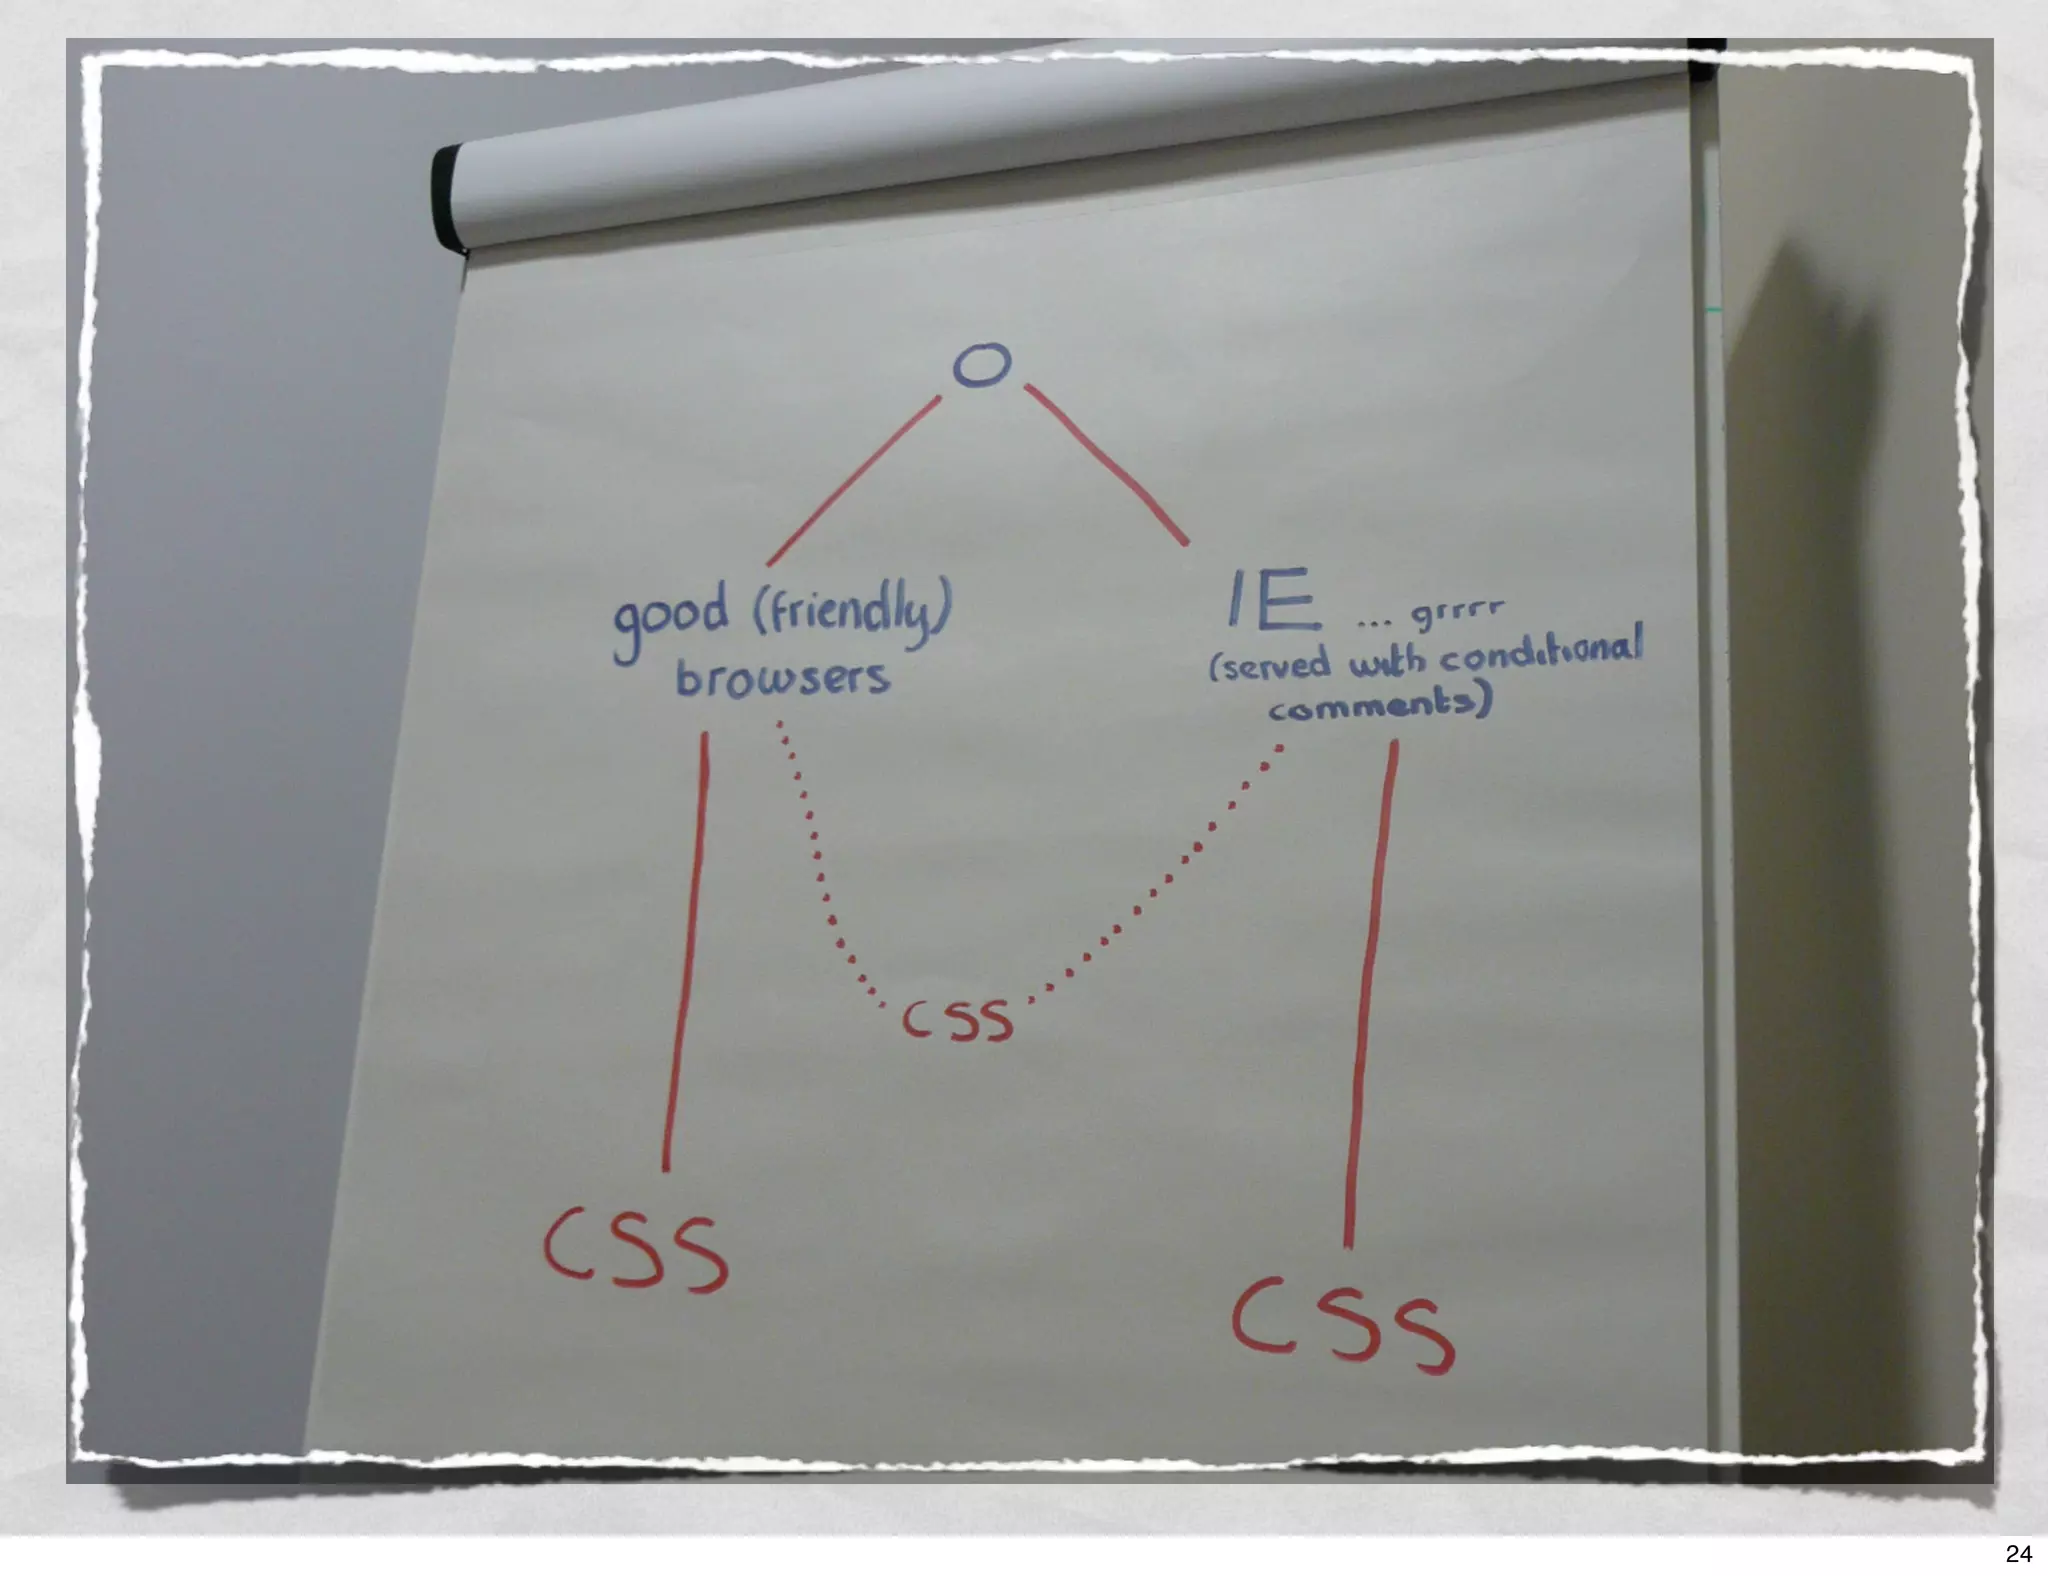 O
good (friendly)
browsers
IE ... grrrr
(served with conditional
comments)
CSS
CSS
CSS
24